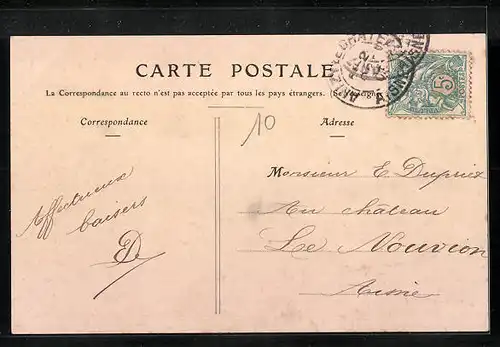 CARTE POSTALE
La Correspondance au recto n'est pas acceptée par tous les pays étrangers. (Se
Correspondance
Adresse
10
Affectueux
baisers
D
Monsieur E. Dupriez
Au château
Le Nouvion
Aisne
5